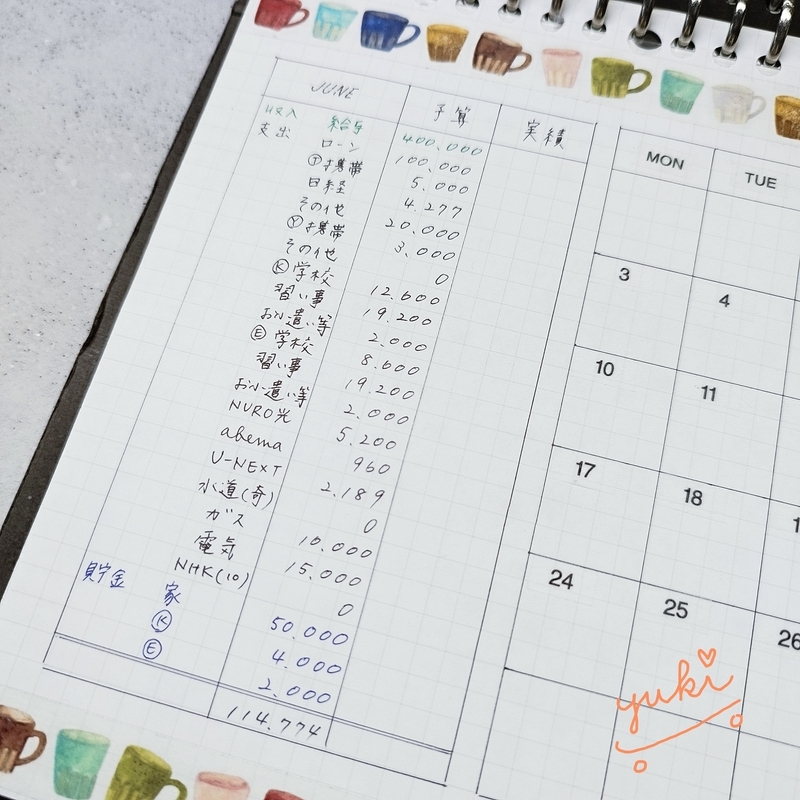 JUNE 予算 実績
収入 給与 400.000
支出 ローン 100.000
Ⓣ携帯 5.000
日経 4.277
その他 20.000
Ⓨ携帯 3.000
その他 0
Ⓚ学校 12.600
習い事 19.200
お小遣い等 2.000
Ⓔ学校 8.600
習い事 19.200
お小遣い等 2.000
NURO光 5.200
abema 960
U-NEXT 2.189
水道(奇) 0
ガス 10.000
電気 15.000
NHK(10) 0
貯金 家 50.000
Ⓚ 4.000
Ⓔ 2.000
114.774
MON TUE
3 4
10 11
17 18 1
24 25 26
yuki